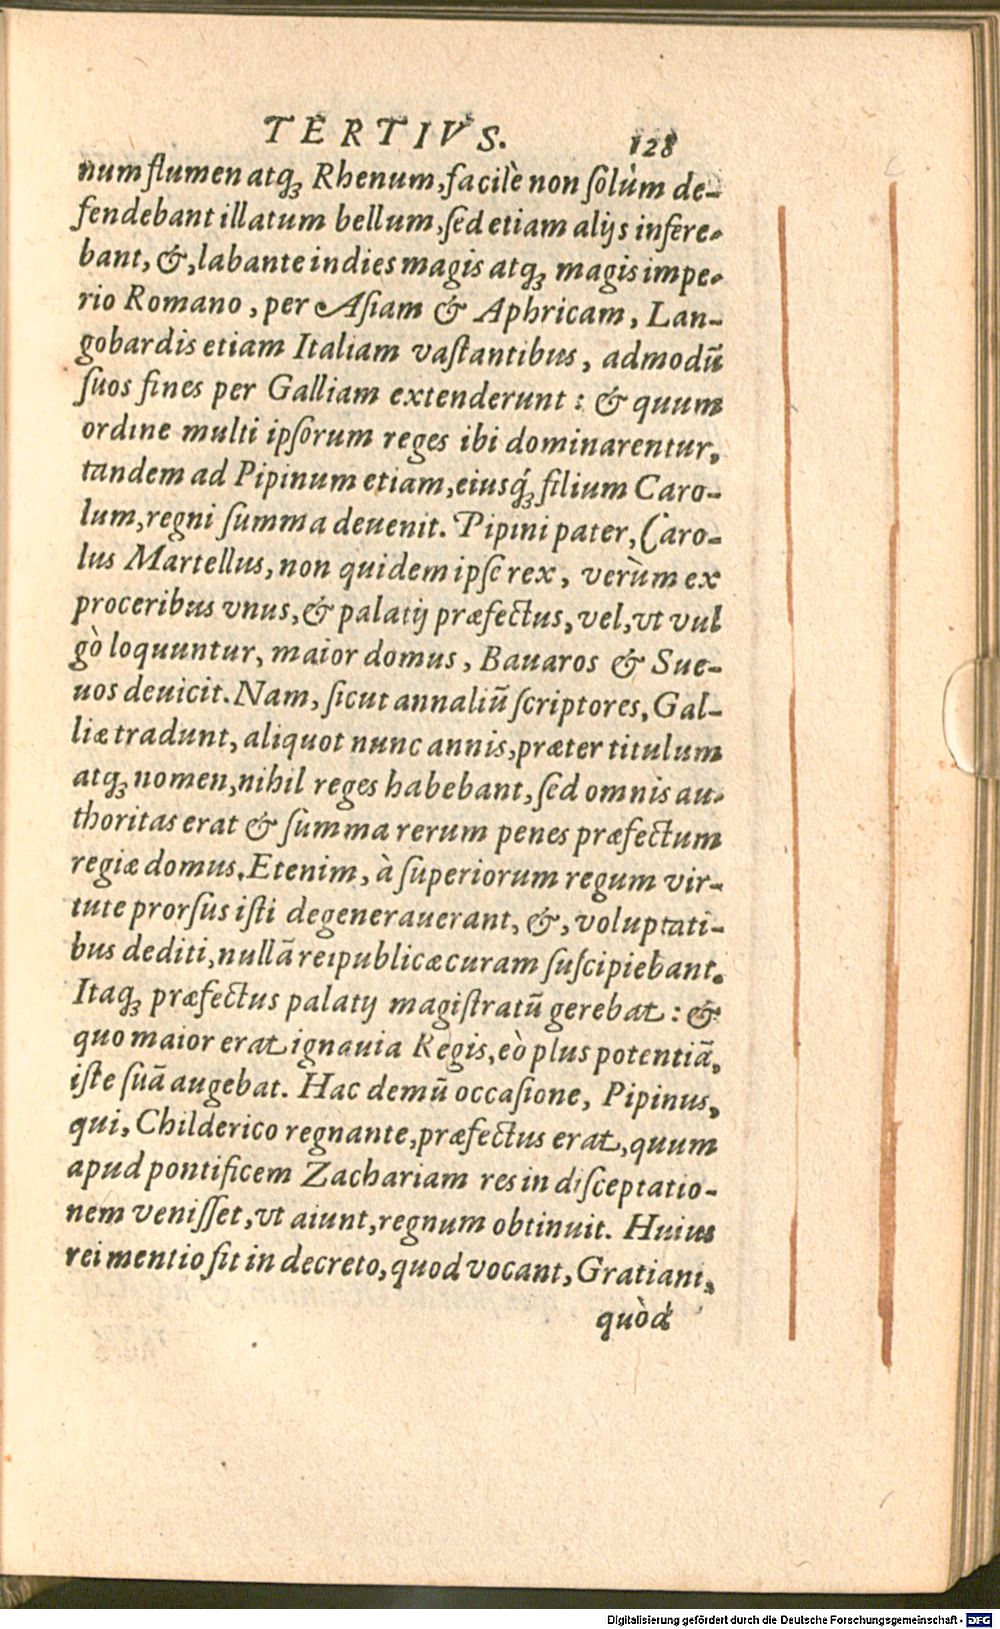 TERTIVS. 128
num flumen atqꝫ Rhenum, facilè non ſolùm de-
fendebant illatum bellum, ſed etiam alijs infere-
bant, &, labante indies magis atqꝫ magis impe-
rio Romano, per Aſiam & Aphricam, Lan-
gobardis etiam Italiam vaſtantibus, admodū
ſuos fines per Galliam extenderunt: & quum
ordine multi ipſorum reges ibi dominarentur,
tandem ad Pipinum etiam, eiusq́ꝫ filium Caro-
lum, regni ſumma deuenit. Pipini pater, Caro-
lus Martellus, non quidem ipſe rex, verùm ex
proceribus vnus, & palatij præfectus, vel, vt vul
gò loquuntur, maior domus, Bauaros & Sue-
uos deuicit. Nam, ſicut annaliū ſcriptores, Gal-
liæ tradunt, aliquot nunc annis, præter titulum
atqꝫ nomen, nihil reges habebant, ſed omnis au-
thoritas erat & ſumma rerum penes præfectum
regiæ domus. Etenim, à ſuperiorum regum vir-
tute prorſus iſti degenerauerant, &, voluptati-
bus dediti, nullā reipublicæ curam ſuſcipiebant.
Itaqꝫ præfectus palatij magiſtratū gerebat: &
quo maior erat ignauia Regis, eò plus potentiā,
iſte ſuā augebat. Hac demū occaſione, Pipinus,
qui, Childerico regnante, præfectus erat, quum
apud pontificem Zachariam res in diſceptatio-
nem veniſſet, vt aiunt, regnum obtinuit. Huius
rei mentio fit in decreto, quod vocant, Gratiani,
quòd
Digitalisierung gefördert durch die Deutsche Forschungsgemeinschaft - DFG